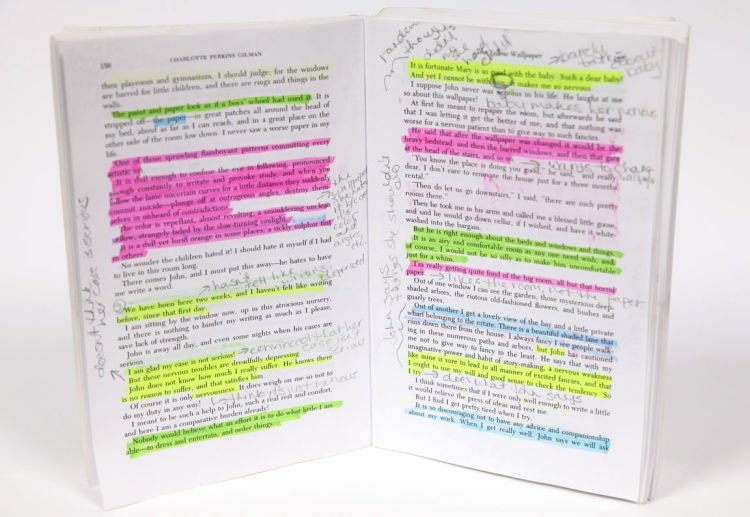 156
CHARLOTTE PERKINS GILMAN
then playroom and gymnasium, I should judge, for the windows
are barred for little children, and there are rings and things in the
walls.
The paint and paper look as if a boys' school had used it. It is
stripped off—the paper—in great patches all around the head of
my bed, about as far as I can reach, and in a great place on the
other side of the room low down. I never saw a worse paper in my
life.
One of those sprawling flamboyant patterns committing every
artistic sin.
It is dull enough to confuse the eye in following, pronounced
enough constantly to irritate and provoke study, and when you
follow the lame uncertain curves for a little distance they suddenly
commit suicide—plunge off at outrageous angles, destroy them
selves in unheard of contradictions.
The color is repellant, almost revolting, a smouldering unclean
yellow, strangely faded by the slow-turning sunlight.
It is a dull yet lurid orange in some places, a sickly sulphur tint
in others.
No wonder the children hated it! I should hate it myself if I had
to live in this room long.
There comes John, and I must put this away—he hates to have
me write a word.
hasn't felt like writing
We have been here two weeks, and I haven't felt like writing
before, since that first day.
I am sitting by the window now, up in this atrocious nursery,
and there is nothing to hinder my writing as much as I please,
save lack of strength.
John is away all day, and even some nights when his cases are
serious.
I am glad my case is not serious!
convinced her
But these nervous troubles are dreadfully depressing.
John does not know how much I really suffer. He knows there
is no reason to suffer, and that satisfies him.
Of course it is only nervousness. It does weigh on me so not to
do my duty in any way!
thinks it's just nervous
I meant to be such a help to John, such a real rest and comfort,
and here I am a comparative burden already!
Nobody would believe what an effort it is to do what little I am
able—to dress and entertain, and order things.
doesn't think her case is serious
random thoughts
Wallpaper
barely
about baby
It is fortunate Mary is so good with the baby. Such a dear baby!
And yet I cannot be with him, it makes me so nervous.
I suppose John never was nervous in his life. He laughs at me
so about this wallpaper!
baby makes her nervous
At first he meant to repaper the room, but afterwards he said
that I was letting it get the better of me, and that nothing was
worse for a nervous patient than to give way to such fancies.
He said that after the wallpaper was changed it would be the
heavy bedstead, and then the barred windows, and then that gate
at the head of the stairs, and so on.
wants to change
"You know the place is doing you good," he said, "and really,
dear, I don't care to renovate the house just for a three months'
rental."
"Then do let us go downstairs," I said, "there are such pretty
rooms there."
Then he took me in his arms and called me a blessed little goose,
and said he would go down cellar, if I wished, and have it white-
washed into the bargain.
But he is right enough about the beds and windows and things.
It is an airy and comfortable room as any one need wish, and,
of course, I would not be so silly as to make him uncomfortable
just for a whim.
I'm really getting quite fond of the big room, all but that horrid
paper.
likes the room not the paper
Out of one window I can see the garden, those mysterious deep-
shaded arbors, the riotous old-fashioned flowers, and bushes and
gnarly trees.
Out of another I get a lovely view of the bay and a little private
wharf belonging to the estate. There is a beautiful shaded lane that
runs down there from the house. I always fancy I see people walk-
ing in these numerous paths and arbors, but John has cautioned
me not to give way to fancy in the least. He says that with my
imaginative power and habit of story-making, a nervous weakness
like mine is sure to lead to all manner of excited fancies, and that
I ought to use my will and good sense to check the tendency. So
I try.
does what John says
I think sometimes that if I were only well enough to write a little
it would relieve the press of ideas and rest me.
But I find I get pretty tired when I try.
It is so discouraging not to have any advice and companionship
about my work. When I get really well, John says we will ask
John says things she should do